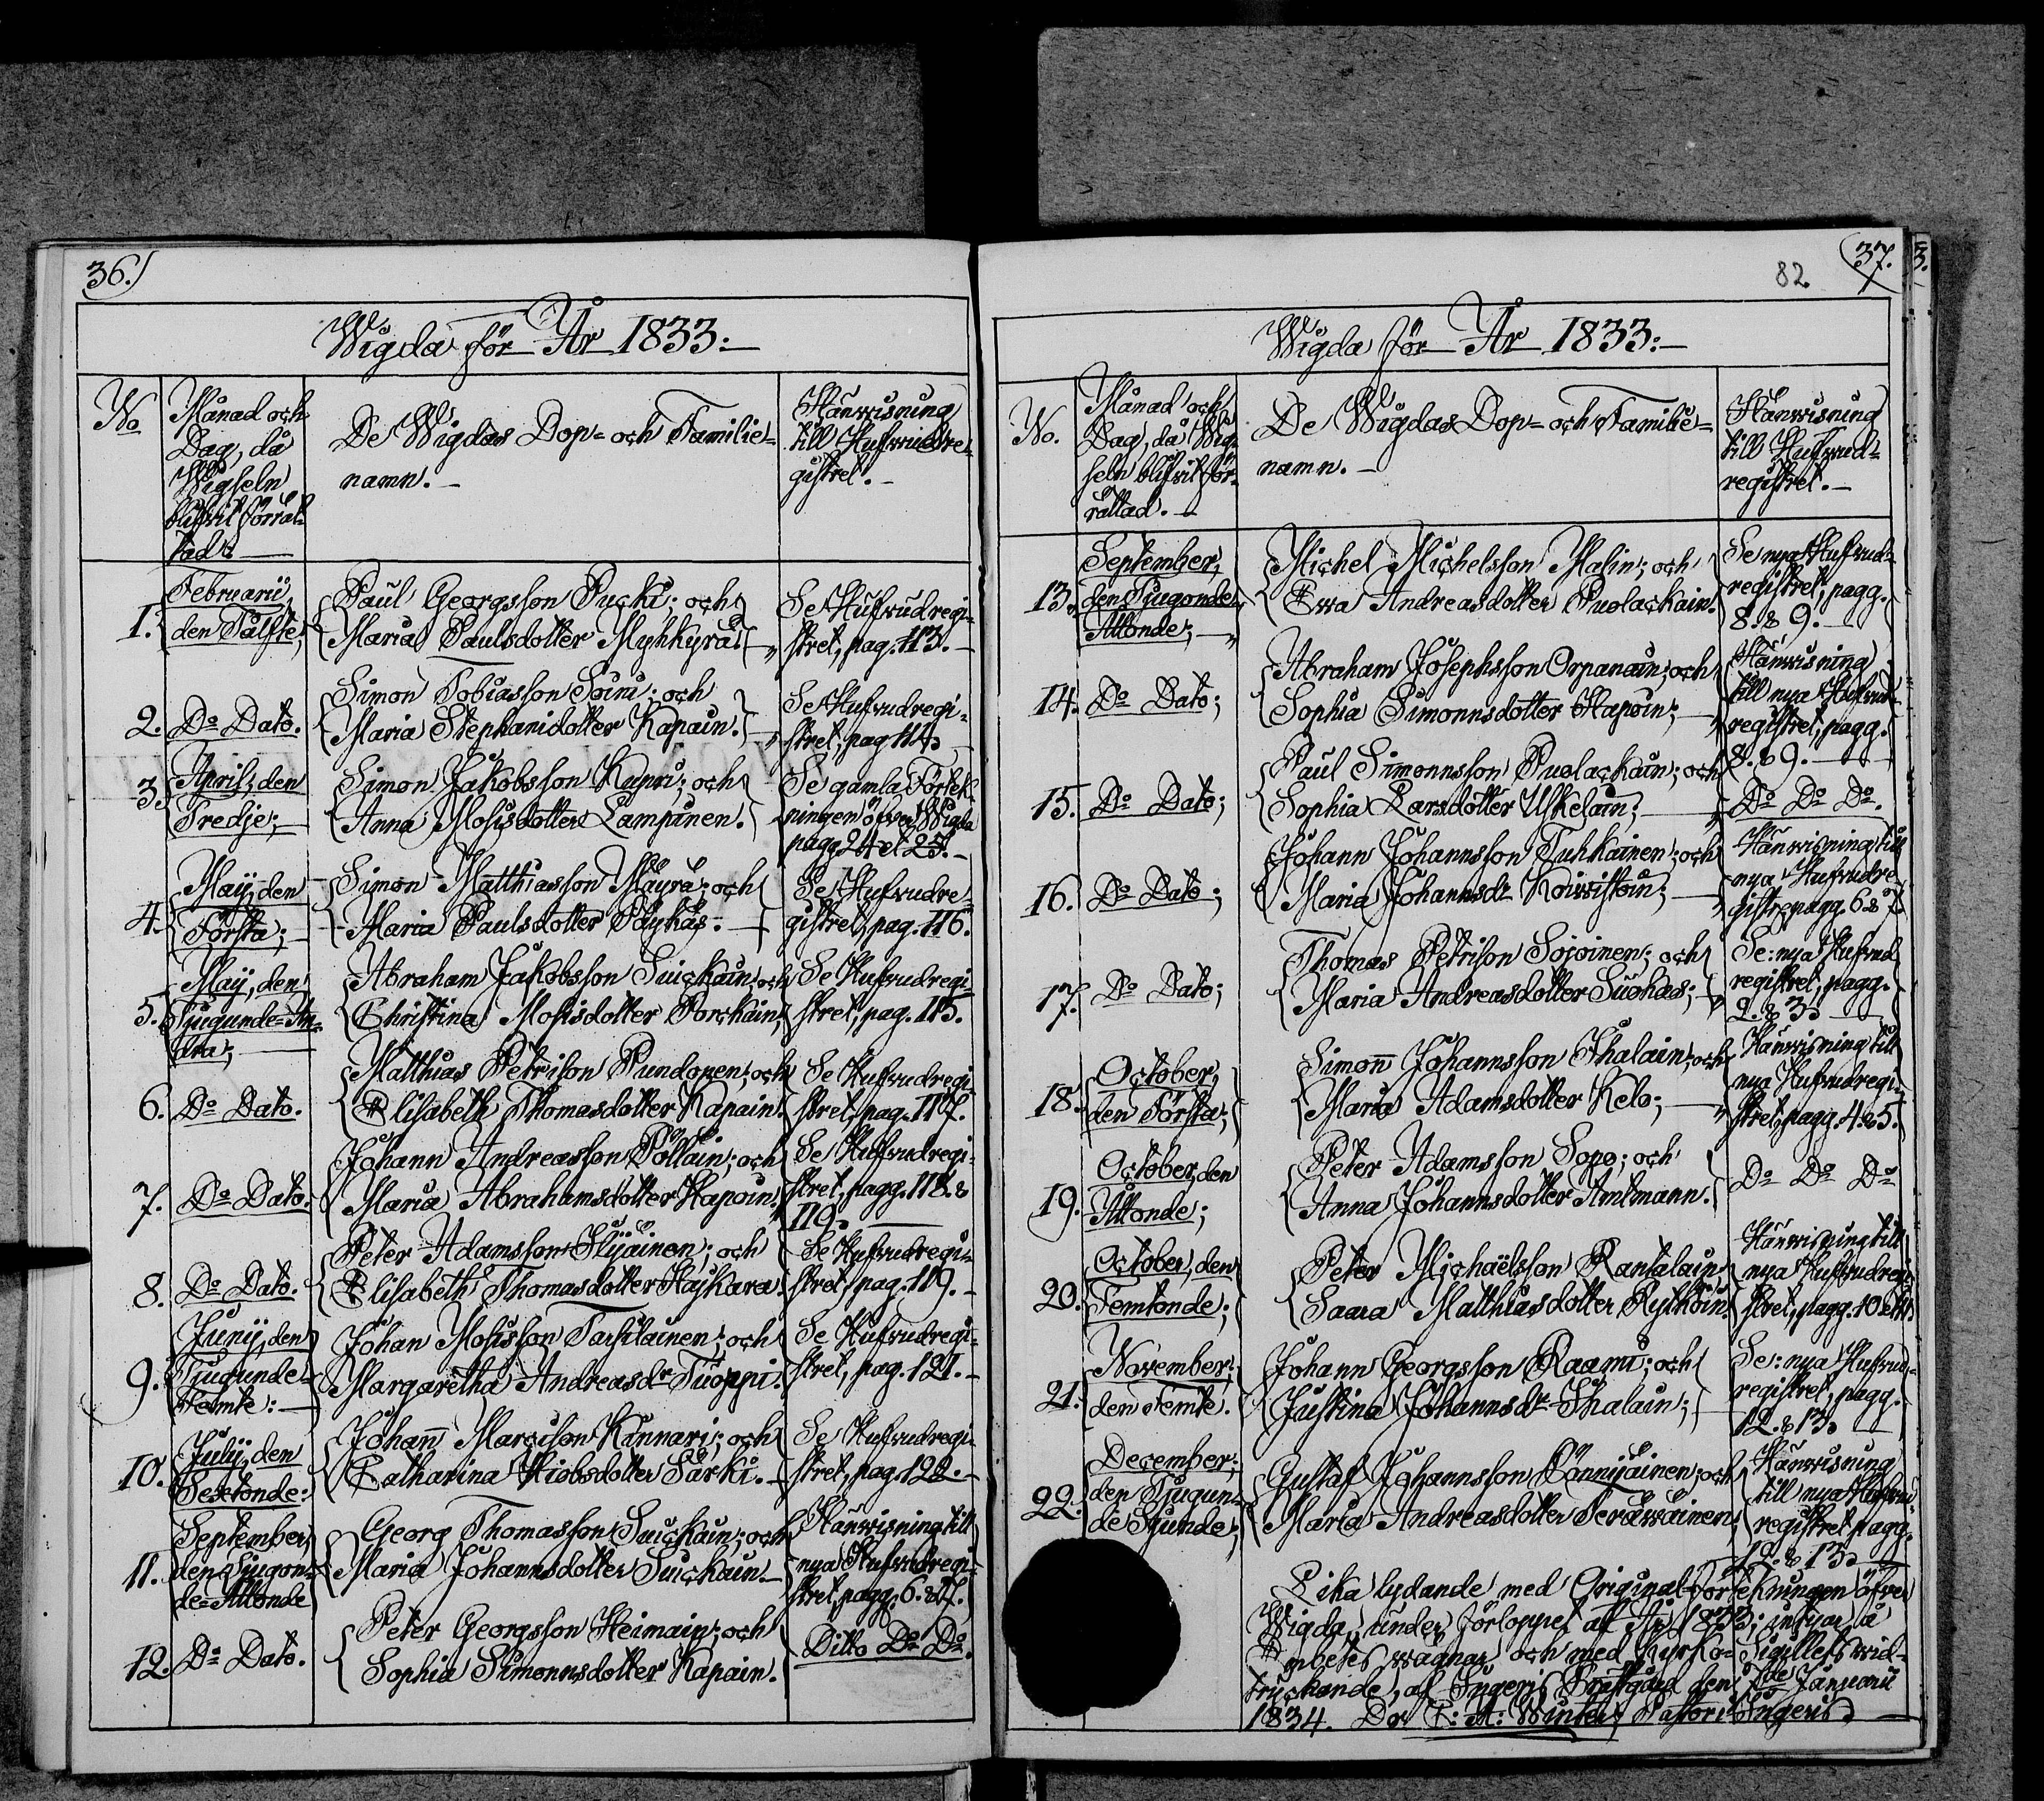 36.)
Wigda för År 1833:
No
Månad och
Dag, då
Wigseln
blifvit förrät-
tad.
De Wigdas Dop- och Familie-
namn.
Hänvisning
till Hufvudre-
gistret.
1.
Februarii,
den Tolfte,
Paul Georgsson Pucki; och
Maria Paulsdotter Myhkyrä.
Se Hufvudregi-
stret, pag. 113.
2.
Do Dato.
Simon Tobiasson Soini; och
Maria Stephanidotter Kapain.
Se Hufvudregi-
stret, pag. 114.
3.
April, den
Tredje;
Simon Jakobsson Kupri; och
Anna Mosisdotter Lampinen.
Se gamla Förtek-
ningen öfver Wigda
pagg. 24 et 25.
4.
Maij, den
Första;
Simon Matthiasson Mäyrä; och
Maria Paulsdotter Pöyhäs.
Se Hufvudre-
gistret, pag. 116.
5.
Maij, den
Tjugunde-An-
dra;
Abraham Jakobsson Suickain; och
Christina Mosisdotter Porckain;
Se Hufvudregi-
stret, pag. 115.
6.
Do Dato.
Matthias Petrison Pundonen; och
Elisabeth Thomasdotter Kapain.
Se Hufvudregi-
stret, pag. 117.
7.
Do Dato.
Johann Andreasson Pölläin; och
Maria Abrahamsdotter Hapoin.
Se Hufvudregi-
stret, pagg. 118. &
119.
8.
Do Dato.
Peter Adamsson Slijäinen; och
Elisabeth Thomasdotter Haykara.
Se Hufvudregi-
stret, pag. 119.
9.
Junij, den
Tjugunde-
Femte:
Johan Mosisson Tassilainen; och
Margaretha Andreasdr Tuoppi.
Se Hufvudregi-
stret, pag. 121.
10.
Julij, den
Sextonde:
Johann Marcison Kannari; och
Catharina Hiobsdotter Särki.
Se Hufvudregi-
stret, pag. 122.
11.
September,
den Tjugon-
de-Åttonde
Georg Thomasson Suickain; och
Maria Johannsdotter Suickain.
Hänvisning till
nya Hufvudregi-
stret, pagg. 6. & 7.
12.
Do Dato.
Peter Georgsson Heimain; och
Sophia Simonnsdotter Kapain.
Ditto Do Do.
82
(37.
3.
Wigda för År 1833:
No.
Månad och
Dag, då Wig-
seln blifvit för-
rättad.
De Wigdas Dop- och Familie-
namn.
Hänvisning
till Hufvud-
registret.
13.
September,
den Tjugonde-
Åttonde;
Michel Michelsson Malin; och
Ewa Andreasdotter Puolackain.
Se nya Hufvud-
registret, pagg.
8. & 9.
14.
Do Dato;
Abraham Josephsson Orpanain; och
Sophia Simonnsdotter Hapoin;
Hänvisning
till nya Hufvud-
registret, pagg.
8. & 9.
15.
Do Dato;
Paul Simonnsson Puolackain; och
Sophia Larsdotter Uskelain;
Do Do Do.
16.
Do Dato;
Johann Johannsson Tuhkainen; och
Maria Johannsdr Koivistoin;
Hänvisning till
nya Hufvudre-
gistre pagg. 6 & 7.
17.
Do Dato;
Thomas Petrison Sojoinen; och
Maria Andreasdotter Suokas;
Se: nya Hufvud
registret, pagg.
2. & 3.
18.
October,
den Första;
Simonn Johannsson Ihalain; och
Maria Adamsdotter Kelo;
Hänvisning till
nya Hufvudregi-
stret, pagg. 4. & 5.
19.
October, den
Åttonde;
Peter Adamsson Sopo; och
Anna Johannsdotter Amtmann.
Do Do Do
20.
October, den
Femtonde;
Peter Michaëlsson Rantalain;
Saara Matthiasdotter Rytköin.
Hänvisning till
nya Hufvudregi-
stret, pagg. 10 & 11.
21.
November,
den Femte.
Johann Georgsson Raami; och
Justina Johannsdr Ihalain;
Se: nya Hufvud-
registret, pagg.
12. & 13.
22.
December;
den Tjugun-
de Sjunde;
Gustaf Johannsson Pönniyäinen; och
Maria Andreasdotter Teräwäinen;
Hänvisning
till nya Hufvud-
registret pagg.
12. & 13.
Lika lydande med Original-Förtekningen öfver
Wigda, under förloppet af År 1833; intygar, å
Embetes wägnar och med Kyrko-Sigillets wid-
tryckande, af Ingeris Prästgård den 7de Januarii
1834. Dor E: A: Winter, Pastor i Ingeris